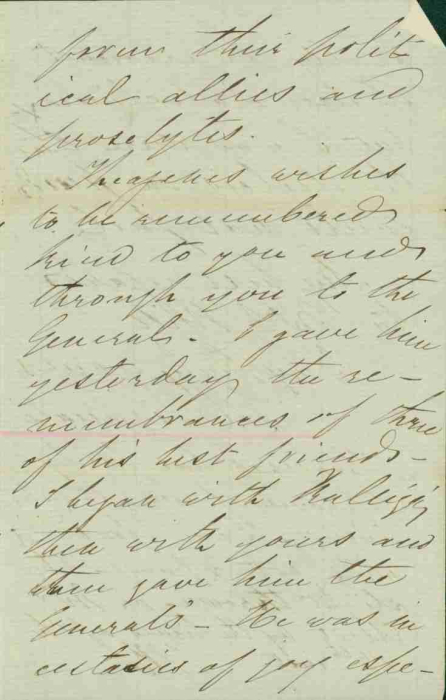 form their polit
ical allies and
proselytes.
Theagenes wishes
to be remembered
kind to you and
through you to the
General. I gave him
yesterday the re-
membrances of three
of his best friends -
I began with
then with yours and
then gave him the
General's - He was in
ecstasies of joy espe-